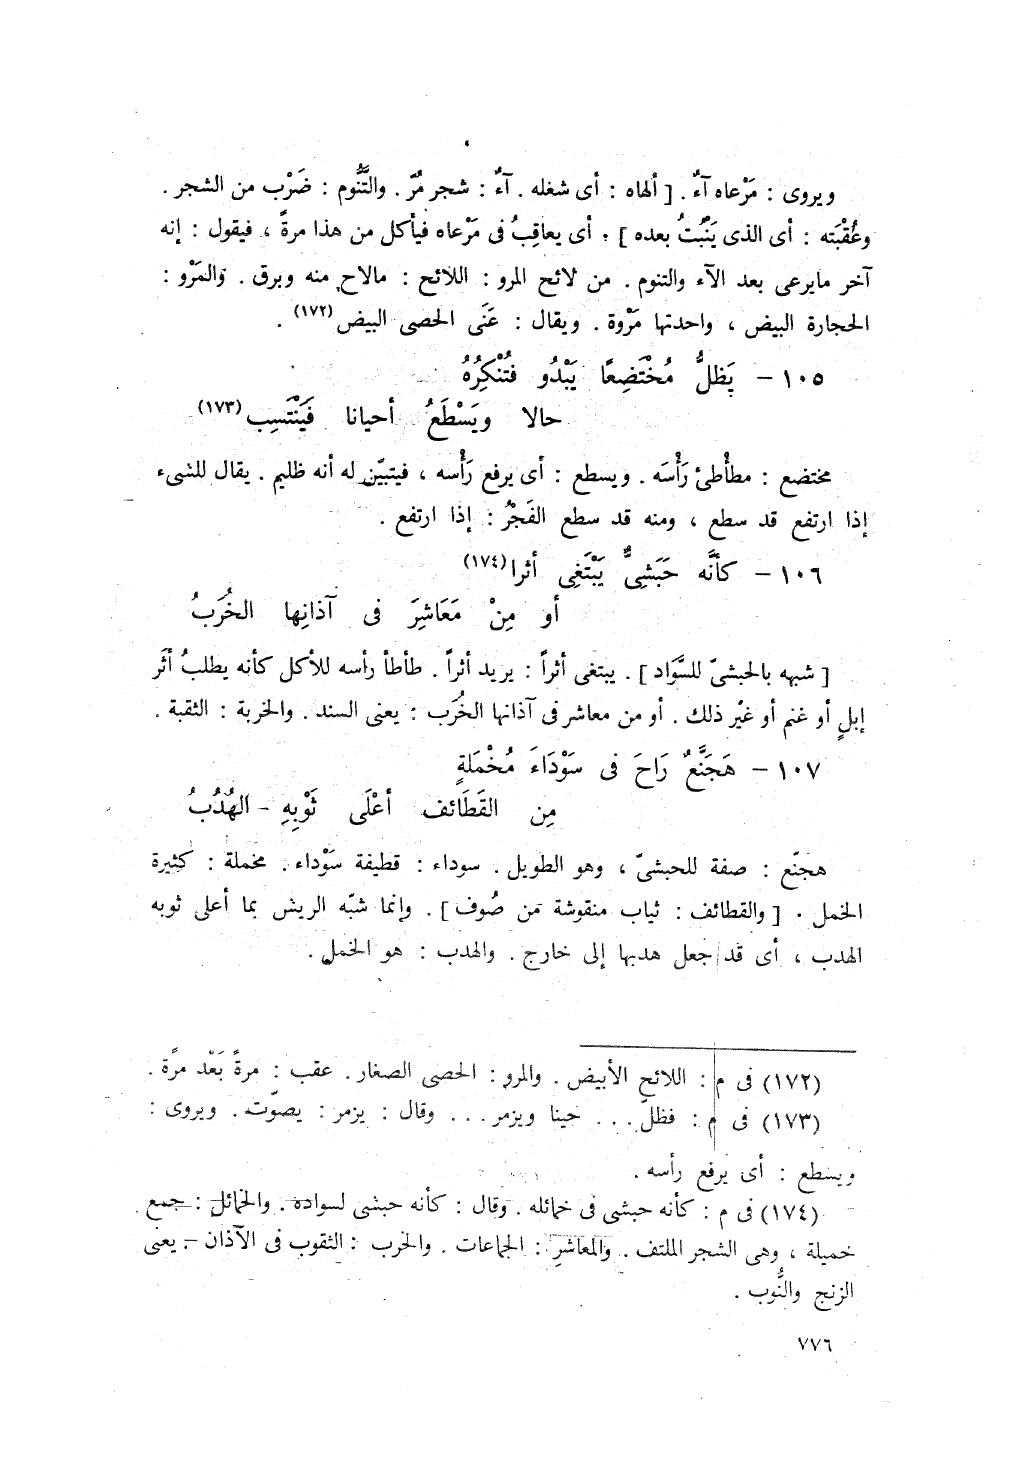 ويروى : مَرْعاه آءٌ . [ ألهاه : أى شغله . آءٌ : شجر مُرّ . والتَّنُّوم : ضَرْب من الشجر .
وعُقْبَته : أى الذى يَنْبُتُ بعده ] . أى يعاقِبُ فى مَرْعاه فيأكل من هذا مرةً ، فيقول : إنه
آخر مايرعى بعد الآء والتنوم . من لائح المرو : اللائح : مالاح منه وبرق . والمَرْو :
الحجارة البيض ، واحدتها مَرْوة . ويقال : عَنَى الحصى البيض (١٧٢) .
١٠٥ – يَظلُّ مُخْتَضِعًا يَبْدُو فتُنْكِرُهُ
حالا ويَسْطَعُ أحيانا فَيَنْتَسِب (١٧٣)
مختضع : مطأْطئ رَأْسَه . ويسطع : أى يرفع رَأْسه ، فيتبيّن له أنه ظليم . يقال للشىء
إذا ارتفع قد سطع ، ومنه قد سطع الفَجْرُ : إذا ارتفع .
١٠٦ – كأنَّه حَبَشِىٌّ يَبْتَغِى أثرا (١٧٤)
أو مِنْ مَعَاشِرَ فى آذانِها الخُرَبُ
[ شبهه بالحبشىّ للسَّوَاد ] . يبتغى أثراً : يريد أثراً . طأطأ رأسه للأكل كأنه يطلبُ أثَر
إبلٍ أو غنم أو غيْر ذلك . أو من معاشر فى آذانها الخُرَب : يعنى السند . والخربة : الثقبة .
١٠٧ – هَجَنَّعٌ رَاحَ فى سَوْدَاءَ مُخْمَلةٍ
مِن القَطَائف أعْلَى ثَوْبِهِ – الهُدُبُ
هجنّع : صفة للحبشىّ ، وهو الطويل . سوداء : قطيفة سَوْداء . مخملة : كثيرة
الخمل . [ والقطائف : ثياب منقوشة من صُوف ] . وإنما شبّه الريش بما أعلى ثوبه
الهدب ، أى قد جعل هدبها إلى خارج . والهدب : هو الخمل .
(١٧٢) فى م : اللائح الأبيض . والمرو : الحصى الصغار . عقب : مرةً بَعْد مرّة .
(١٧٣) فى م : فظلّ . . . حينا ويزمر . . . وقال : يزمر : يصوّت . ويروى :
ويسطع : أى يرفع رأسه .
(١٧٤) فى م : كأنه حبشى فى خمائله . وقال : كأنه حبشى لسواده . والخمائل : جمع
خميلة ، وهى الشجر الملتف . والمعاشر : الجماعات . والخرب : الثقوب فى الآذان – يعنى
الزنج والنُّوب .
٧٧٦